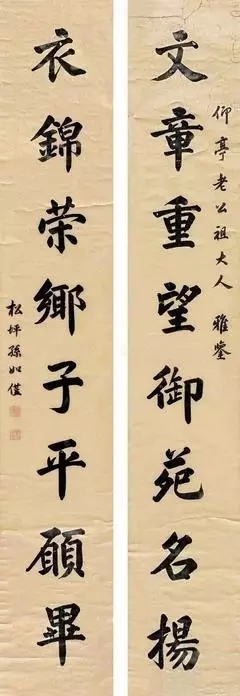 仰亭老公祖大人 雅鑒
文章重望御苑名揚
衣錦荣鄉子平願畢
松坪孫如僅